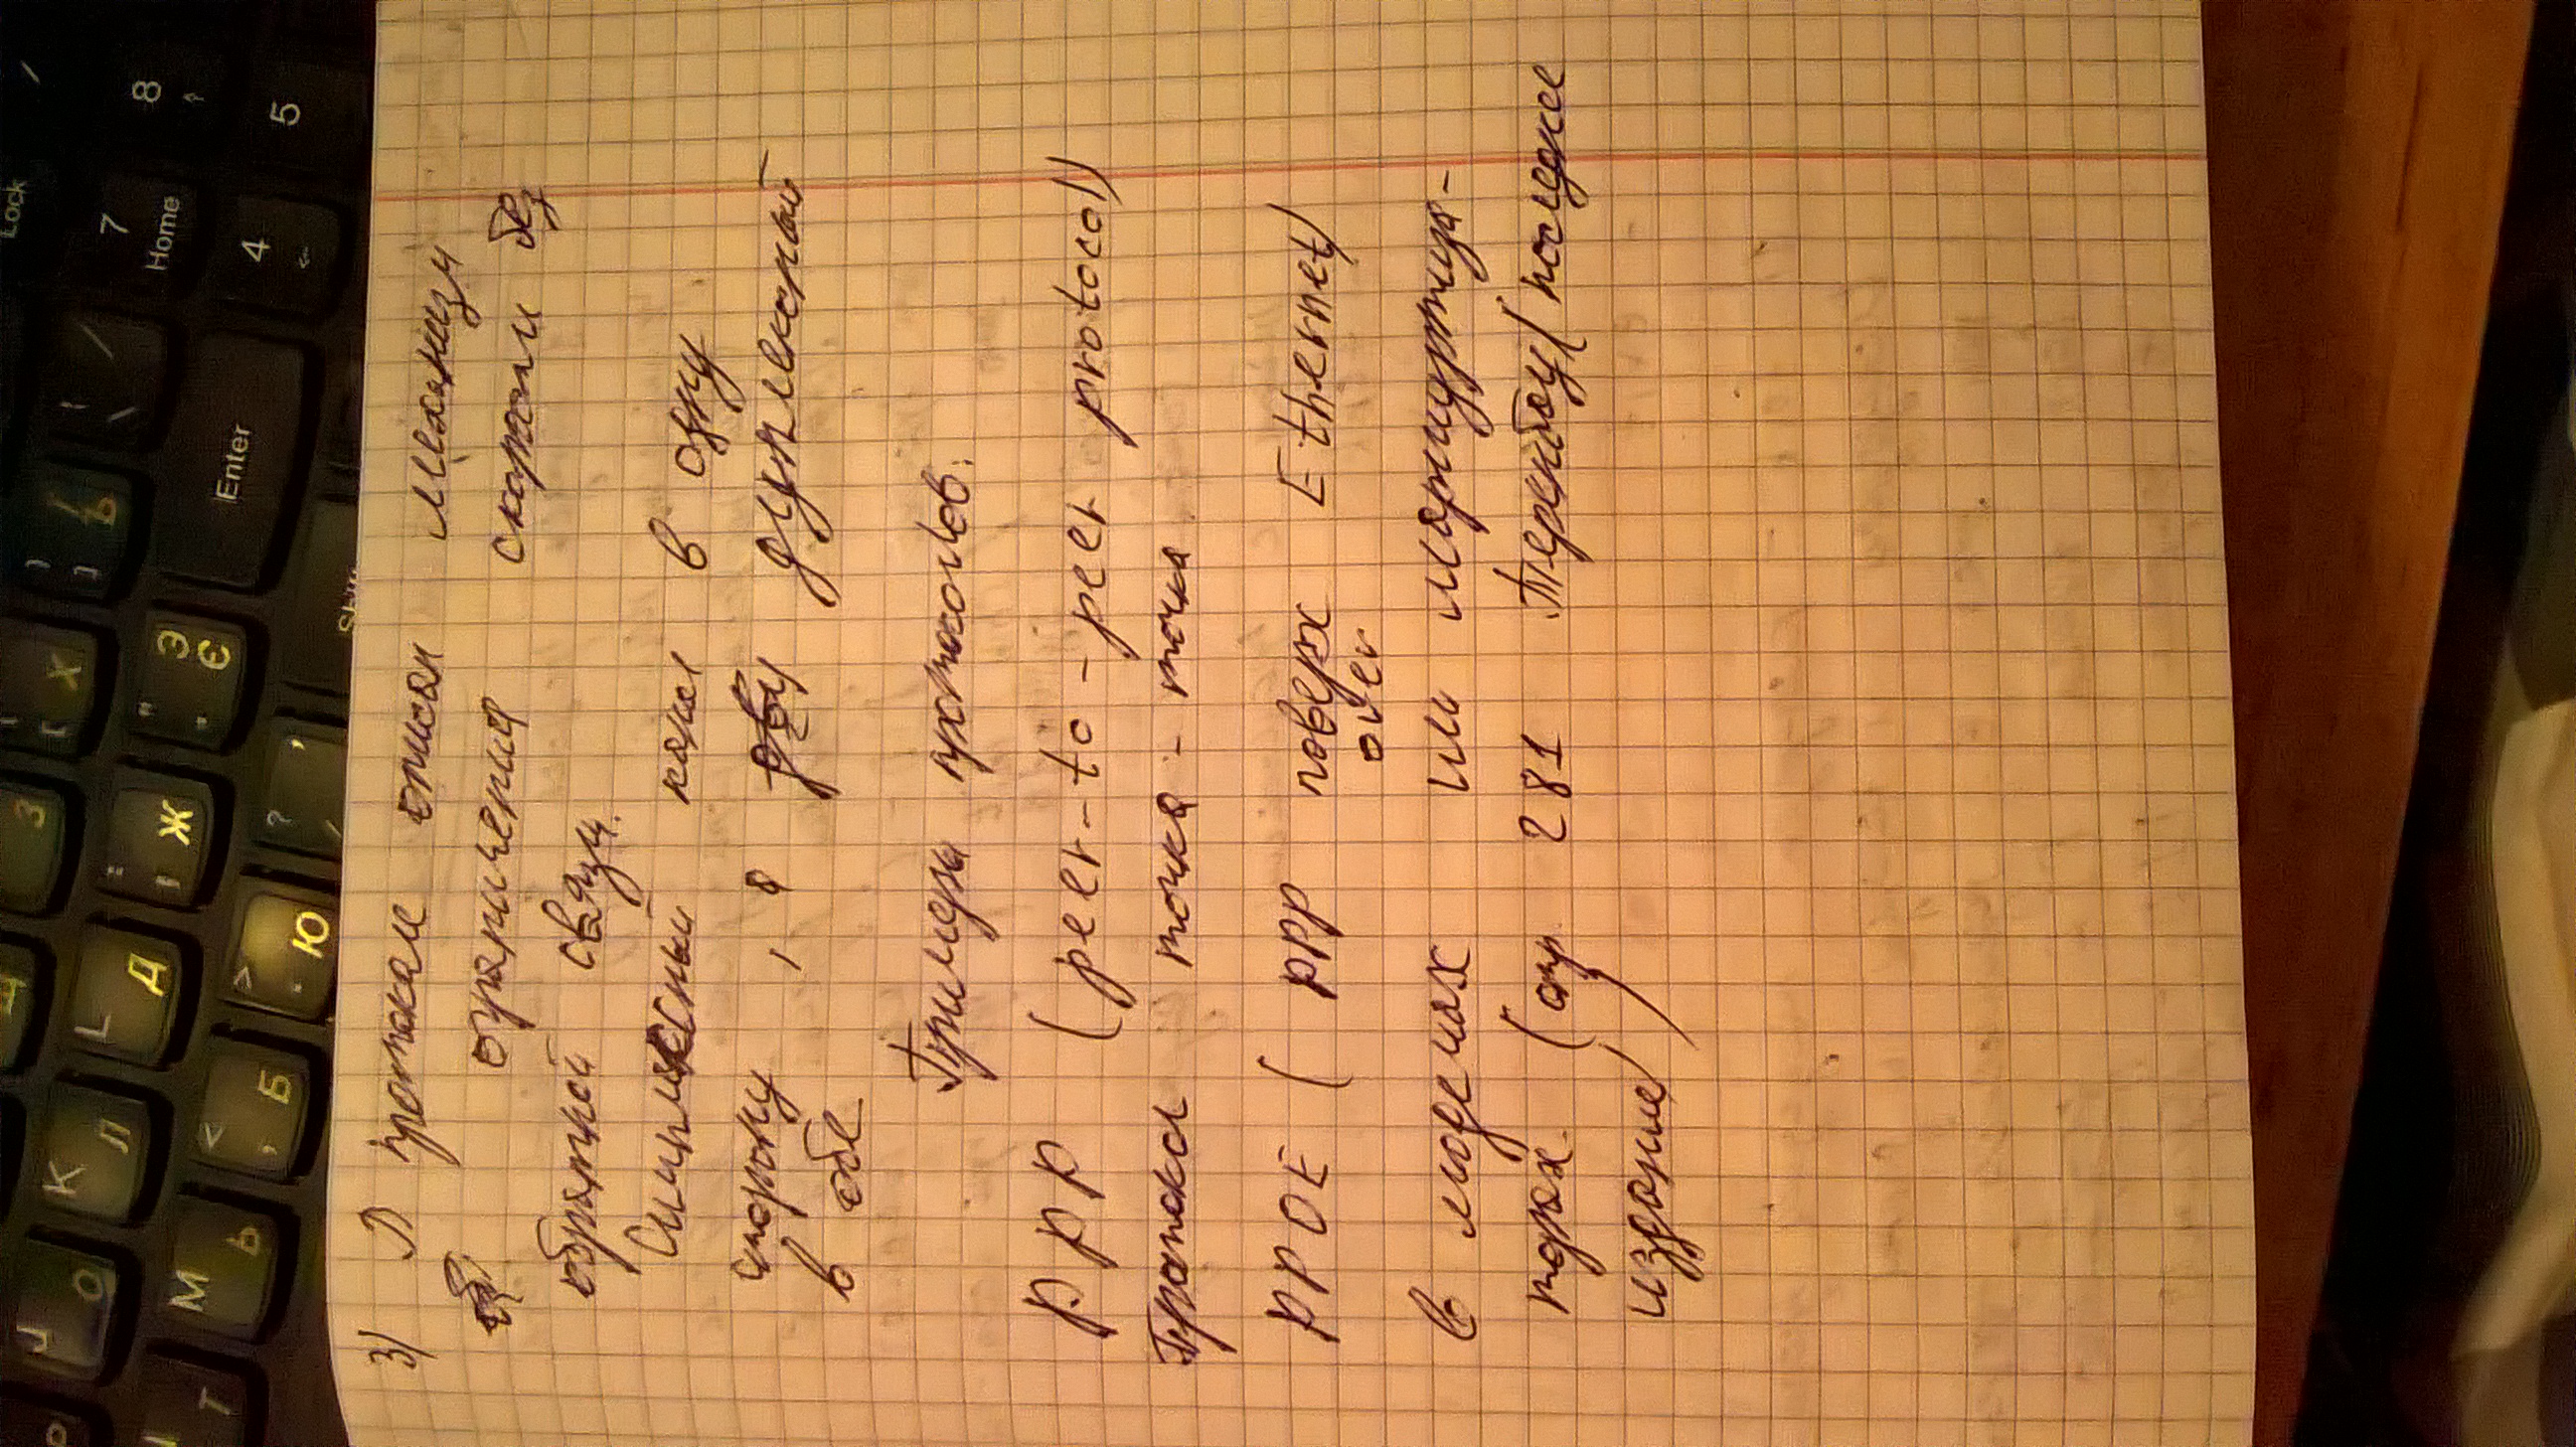 Щ З [ Х ] Ъ \ / Lock /
J О К Л L Д ; Ж " Э Є 7 Home 8
М Ь < , Б > . Ю ? / Enter 4 5
Т Shift
3) В протоколе описан механизм
ограничения скорости без
обратной связи.
Симплексный канал в одну
сторону, а дуплексный
в обе
Примеры протоколов:
PPP (peer-to-peer protocol)
Протокол точка - точка
PPOE ( PPP поверх Ethernet)
over
в модемах или маршрутиза-
торах. (стр. 281 (последнее
издание) )